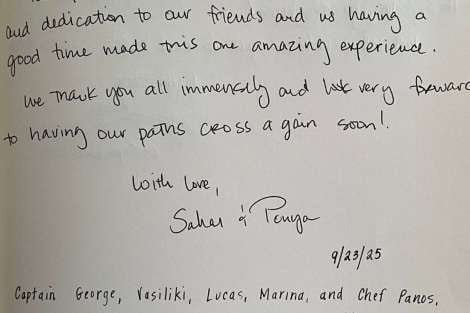 and dedication to our friends and us having a
good time made this one amazing experience.
We thank you all immensely and look very forward
to having our paths cross a gain soon!
With love,
&
9/23/25
Captain George, Vasiliki, Lucas, Marina, and Chef Panos,